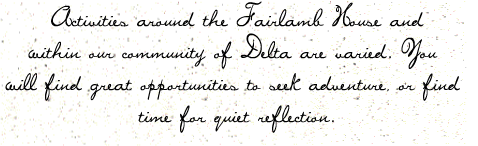 Activities around the Fairlamb House and
within our community of Delta are varied. You
will find great opportunities to seek adventure, or find
time for quiet reflection.